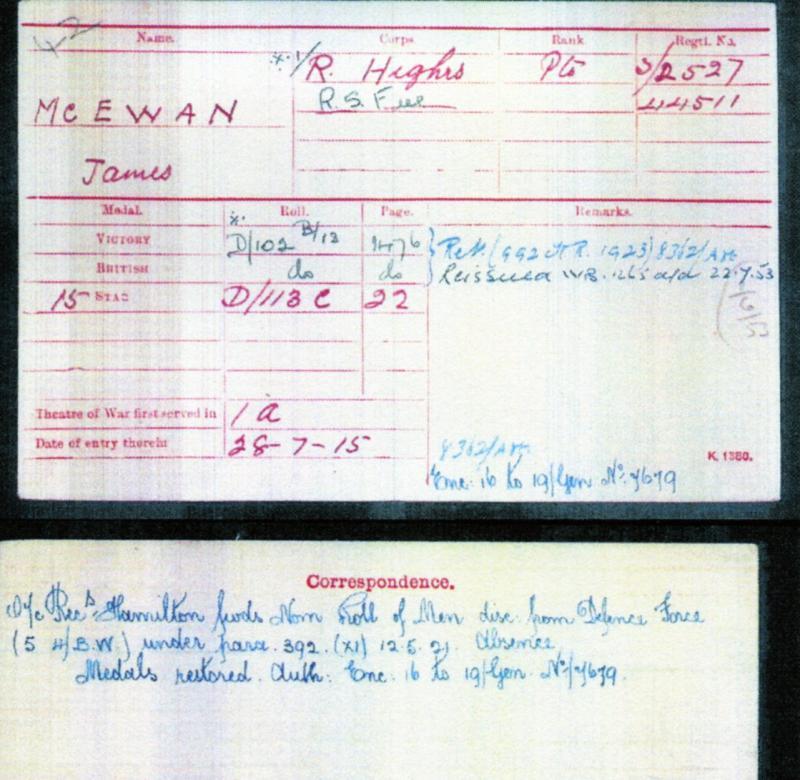 42
Name. Corps. Rank. Regtl. No.
*1/R. Highrs Pte S/2527
R. S. Fus 44511
McEWAN
James
Medal. Roll. Page. Remarks.
VICTORY *. D/102 B/13 1476
BRITISH do do Reissued 22.7.53
15 STAR D/113 C 22
Theatre of War first served in 1a
Date of entry therein 28-7-15
8362/
K. 1380.
Enc: 16 to 19/Gen No: 7679
Correspondence.
O/c Recds Hamilton fwds Nom Roll of Men disc. from Defence Force
(5 4/B.W.) under para. 392. (XI) 12.5.21. Absence.
Medals restored. Auth: Enc. 16 to 19/Gen. No:/7679.